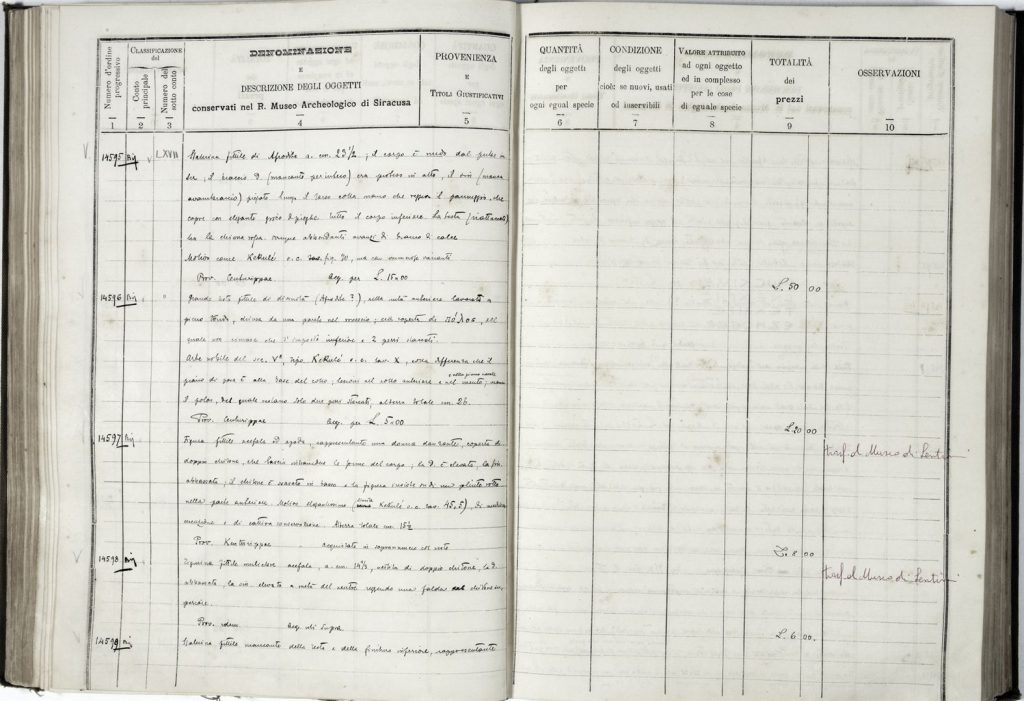 Numero d'ordine progressivo
CLASSIFICAZIONE del
Conto principale
Numero del sotto conto
DENOMINAZIONE
E
DESCRIZIONE DEGLI OGGETTI
conservati nel R. Museo Archeologico di Siracusa
PROVENIENZA
E
TITOLI GIUSTIFICATIVI
QUANTITÀ
degli oggetti
per
ogni egual specie
CONDIZIONE
degli oggetti
cioè: se nuovi, usati
od inservibili
VALORE ATTRIBUITO
ad ogni oggetto
ed in complesso
per le cose
di eguale specie
TOTALITÀ
dei
prezzi
OSSERVAZIONI
1 2 3 4 5 6 7 8 9 10
14595 LXVII Statuina fittile di Afrodite a. cm. 23 1/2; il corpo è nudo dal pube in
su; il braccio d (mancante per intero) era proteso in alto, il sin (manca
avambraccio) piegato lungo il torso colla mano che regge il panneggio, che
copre con elegante gioco di pieghe tutto il corpo inferiore. La testa (riattaccata)
ha la chioma rossa. Ovunque abbondanti avanzi di bianco di calce
Motivo come Kekulé o. c. fig. 70, ma con numerose varianti
Prov. Centuripae Acq. per L. 15=00
L. 50 00
14596 " Grande testa fittile di divinità (Afrodite?), nella metà anteriore lavorata a
pieno tondo, di
quale non rimane che l'imposto inferiore e 2 pezzi staccati.
Arte nobile del sec. V°, tipo Kekulé o. c. tav. X, colla differenza che il
piano di posa è alla base del collo; lesioni nel collo anteriore e nel mento;
il polos, del quale restano solo due pezzi staccati, altezza totale cm 26.
Prov. Centuripae Acq. per L. 5=00
L. 20 00
14597 Figura fittile acefala rappresentante una donna danzante, coperta di
doppio chitone, che lascia intravedere le forme del corpo; la d. è elevata, la sin.
abbassata; il chitone è svasato in basso e la figura
nella parte anteriore. Motivo elegantissimo (simile Kekulé o. c. tav. 45,5), di mediocre
esecuzione e di cattiva conservazione. Altezza totale cm. 15 1/2
Prov. Kenturipae acquistata in soprannumero col resto
trasf. al Museo di Lentini
L. 8 00
14598 Figurina fittile muliebre acefala, a. cm 14 1/2, vestita di doppio chitone, la d.
abbassata, la sin. elevata a metà del ventre reggendo una falda del chitone su-
periore.
Prov. idem. Acq. uti supra
trasf. al Museo di Lentini
L. 6 00.
14599 Statuina fittile mancante della testa e della finitura inferiore, rappresentante